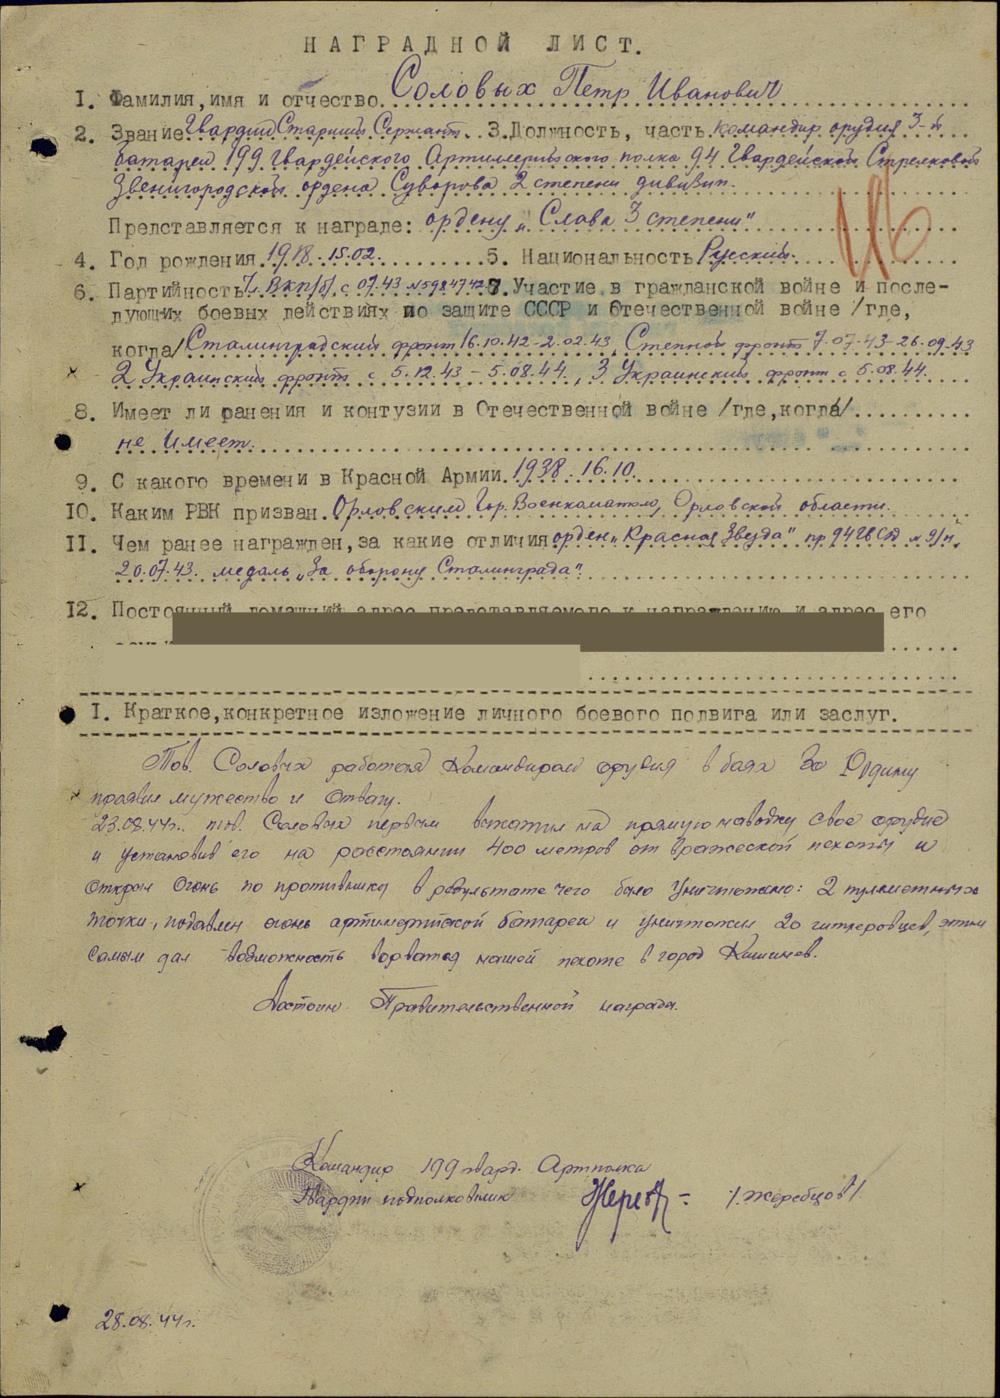 НАГРАДНОЙ ЛИСТ.
1. Фамилия, имя и отчество Соловых Петр Иванович
2. Звание Гвардии Старший Сержант. 3. Должность, часть командир орудия 3-й
батареи 199 Гвардейского Артиллерийского полка 94 Гвардейской Стрелковой
Звенигородской ордена Суворова 2 степени дивизии.
Представляется к награде: ордену „Слава 3 степени"
4. Год рождения 1918. 15.02. 5. Национальность Русский
6. Партийность Чл. ВКП/б/ с 07.43 №5984742 7. Участие в гражданской войне и после-
дующих боевых действиях по защите СССР и Отечественной войне /где,
когда/ Сталинградский фронт 16.10.42-2.02.43, Степной фронт 7.07.43-26.09.43
2 Украинский фронт с 5.12.43 – 5.08.44., 3 Украинский фронт с 5.08.44.
8. Имеет ли ранения и контузии в Отечественной войне /где, когда/
не имеет.
9. С какого времени в Красной Армии 1938. 16.10.
10. Каким РВК призван Орловским Гор. Военкоматом, Орловской области.
11. Чем ранее награжден, за какие отличия орден „Красная Звезда" пр 94 ГвСД № 9/н
20.07.43. медаль „За оборону Сталинграда"
12. Постоянный домашний адрес представляемого к награждению и адрес его
I. Краткое, конкретное изложение личного боевого подвига или заслуг.
Тов. Соловых работая Командиром орудия в боях за Родину
проявил мужество и отвагу.
23.08.44г. тов. Соловых первым выкатил на прямую наводку свое орудие
и установив его на расстоянии 400 метров от вражеской пехоты и
открыл огонь по противнику в результате чего было уничтожено: 2 пулеметных
точки, подавлен огонь артиллерийской батареи и уничтожил 20 гитлеровцев, этим
самым дал возможность ворваться нашей пехоте в город Кишинев.
Достоин Правительственной награды.
Командир 199 гвард. Артполка
Гвардии подполковник /Жеребцов/
28.08.44г.